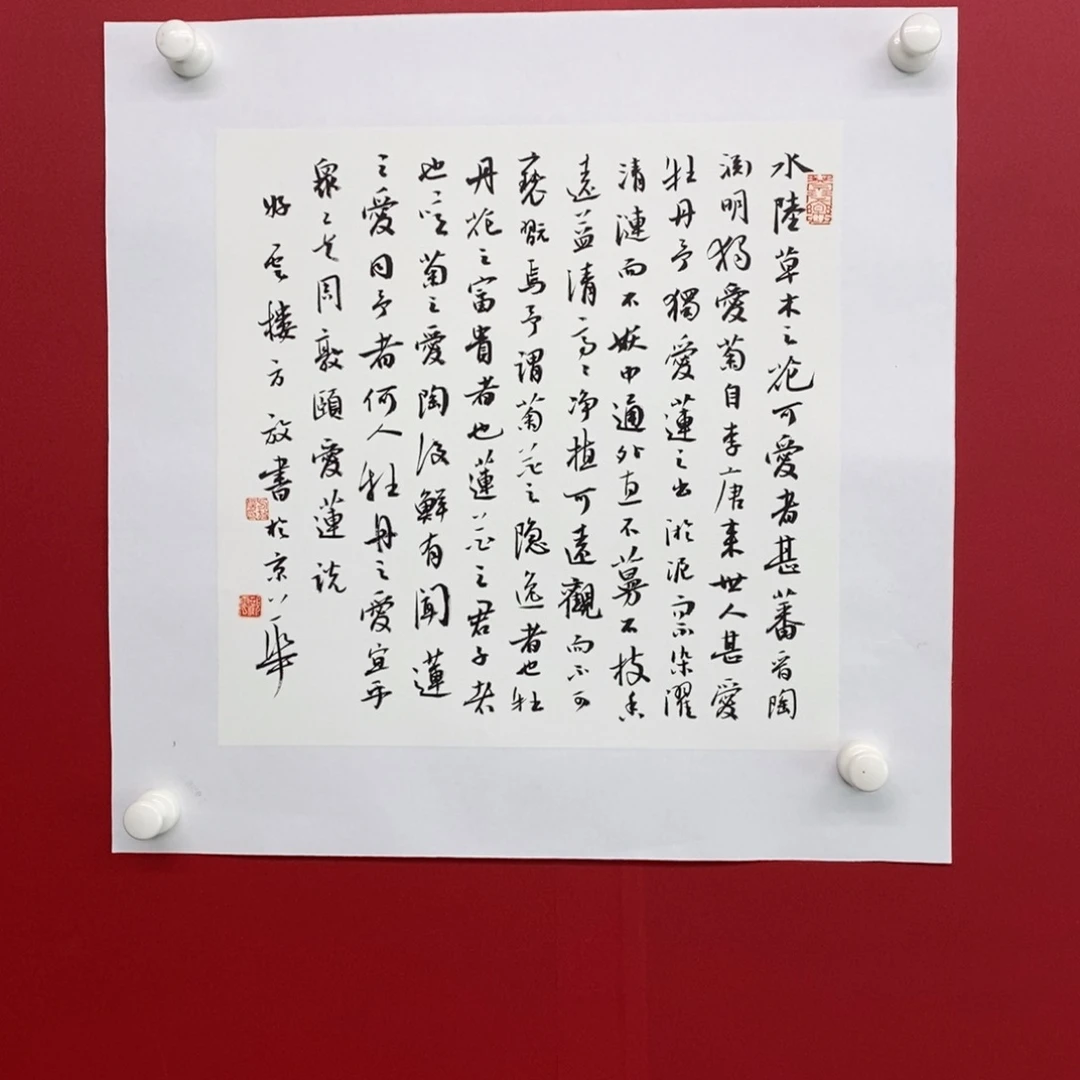 水陸草木之花可愛者甚蕃晉陶
淵明獨愛菊自李唐来世人甚愛
牡丹予獨愛蓮之出淤泥而不染濯
清漣而不妖中通外直不蔓不枝香
遠益清亭〻净植可遠觀而不可
褻翫焉予謂菊花之隐逸者也牡
丹花之富貴者也蓮花之君子者
也噫菊之愛陶後鮮有聞蓮
之愛同予者何人牡丹之愛宜乎
眾〻矣周敦頤愛蓮说
雲楼方放書於京華